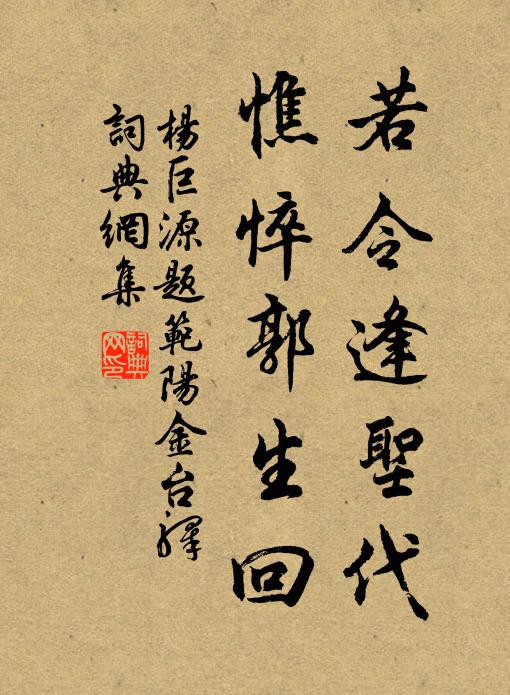 若令逢聖代
憔悴郭生回
楊巨源題範陽金台驛
詞典網集
詞典網印